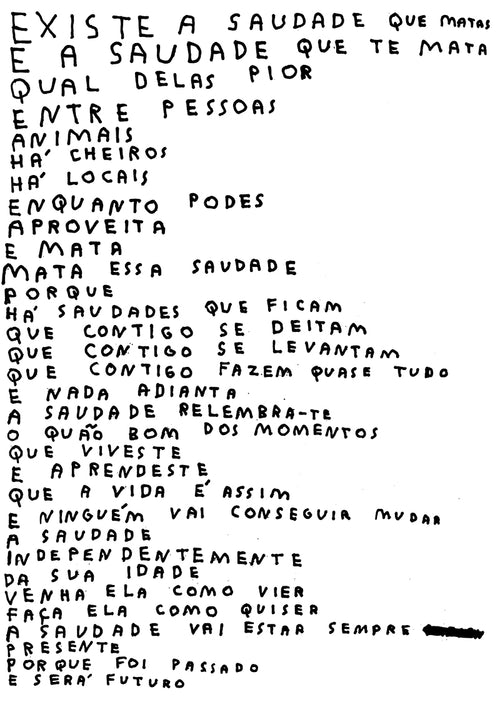 EXISTE A SAUDADE QUE MATAS
E A SAUDADE QUE TE MATA
QUAL DELAS PIOR
ENTRE PESSOAS
ANIMAIS
HÁ CHEIROS
HÁ LOCAIS
ENQUANTO PODES
APROVEITA
E MATA
MATA ESSA SAUDADE
PORQUE
HÁ SAUDADES QUE FICAM
QUE CONTIGO SE DEITAM
QUE CONTIGO SE LEVANTAM
QUE CONTIGO FAZEM QUASE TUDO
E NADA ADIANTA
A SAUDADE RELEMBRA-TE
O QUÃO BOM DOS MOMENTOS
QUE VIVESTE
E APRENDESTE
QUE A VIDA É ASSIM
E NINGUÉM VAI CONSEGUIR MUDAR
A SAUDADE
INDEPENDENTEMENTE
DA SUA IDADE
VENHA ELA COMO VIER
FAÇA ELA COMO QUISER
A SAUDADE VAI ESTAR SEMPRE
PRESENTE
PORQUE FOI PASSADO
E SERÁ FUTURO